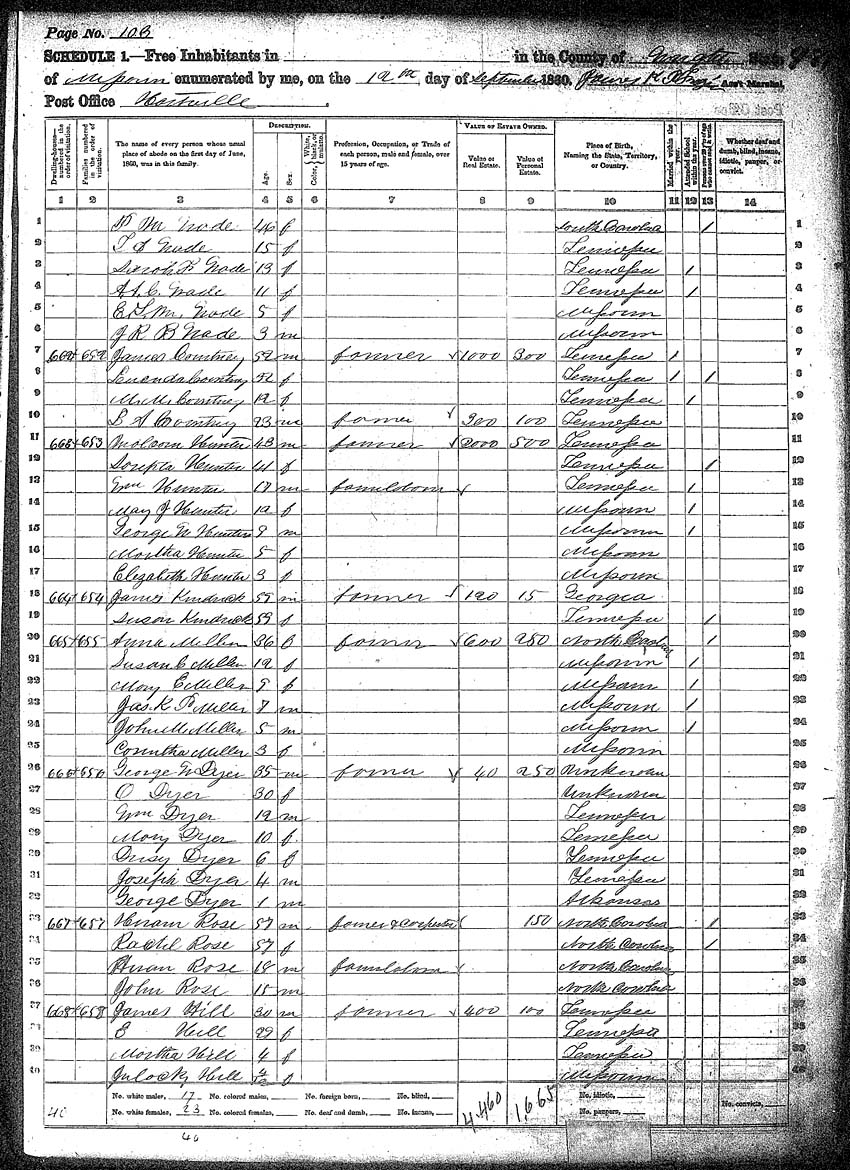 Page No. 108
SCHEDULE 1.—Free Inhabitants in in the County of Wright State
of Missouri enumerated by me, on the 12th day of September 1860. Ass't Marshal.
Post Office Hartville
Dwelling-houses—numbered in the order of visitation.
Families numbered in the order of visitation.
The name of every person whose usual place of abode on the first day of June, 1860, was in this family.
DESCRIPTION.
Age.
Sex.
Color, White, black, or mulatto.
Profession, Occupation, or Trade of each person, male and female, over 15 years of age.
VALUE OF ESTATE OWNED.
Value of Real Estate.
Value of Personal Estate.
Place of Birth, Naming the State, Territory, or Country.
Married within the year.
Attended School within the year.
Persons over 20 y'rs of age who cannot read & write.
Whether deaf and dumb, blind, insane, idiotic, pauper, or convict.
1 2 3 4 5 6 7 8 9 10 11 12 13 14
1 Wade 46 f South Carolina / 1
2 Wade 15 f Tennessee 2
3 Sarah F Wade 13 f Tennessee / 3
4 A. A. C. Wade 11 f Tennessee / 4
5 E. L. M. Wade 5 f Missouri 5
6 J R B Wade 3 m Missouri 6
7 652 James Courtney 52 m farmer 1000 300 Tennessee / 7
8 Courtney 52 f Tennessee / / 8
9 M. M. Courtney 12 f Tennessee / 9
10 Courtney 23 m farmer 200 100 Tennessee 10
11 663 653 Molcom Hunter 43 m farmer 2000 500 Tennessee 11
12 Hunter 41 f Tennessee / 12
13 Wm Hunter 17 m farm laborer Tennessee / 13
14 Mary J Hunter 12 f Missouri / 14
15 George W Hunter 9 m Missouri / 15
16 Martha Hunter 5 f Missouri 16
17 Elizabeth Hunter 3 f Missouri 17
18 664 654 James Kindrick 59 m farmer 120 15 Georgia 18
19 Susan Kindrick 59 f Tennessee / 19
20 665 655 Anna Miller 36 f farmer 600 250 North Carolina / 20
21 Susan C Miller 12 f Missouri / 21
22 Mary E Miller 9 f Missouri / 22
23 Jas. K P Miller 7 m Missouri / 23
24 John M Miller 5 m Missouri / 24
25 Corintha Miller 3 f Missouri 25
26 666 656 George W Dyer 35 m farmer 40 250 Unknown 26
27 O Dyer 30 f Unknown 27
28 Wm Dyer 12 m Tennessee 28
29 Mary Dyer 10 f Tennessee 29
30 Dyer 6 f Tennessee 30
31 Joseph Dyer 4 m Tennessee 31
32 George Dyer 1 m Arkansas 32
33 667 657 Hiram Rose 57 m farmer & carpenter 150 North Carolina / 33
34 Rachel Rose 57 f North Carolina / 34
35 Hiram Rose 18 m farm laborer North Carolina 35
36 John Rose 15 m North Carolina 36
37 668 658 James Hill 30 m farmer 400 100 Tennessee 37
38 E Hill 29 f Tennessee 38
39 Martha Hill 4 f Tennessee 39
40 Hill f Missouri 40
40 No. white males, 17 No. colored males, No. foreign born, No. blind, 4,460 1,665 No. idiotic, No. convicts,
No. white females, 23 No. colored females, No. deaf and dumb, No. insane, No. paupers,
40